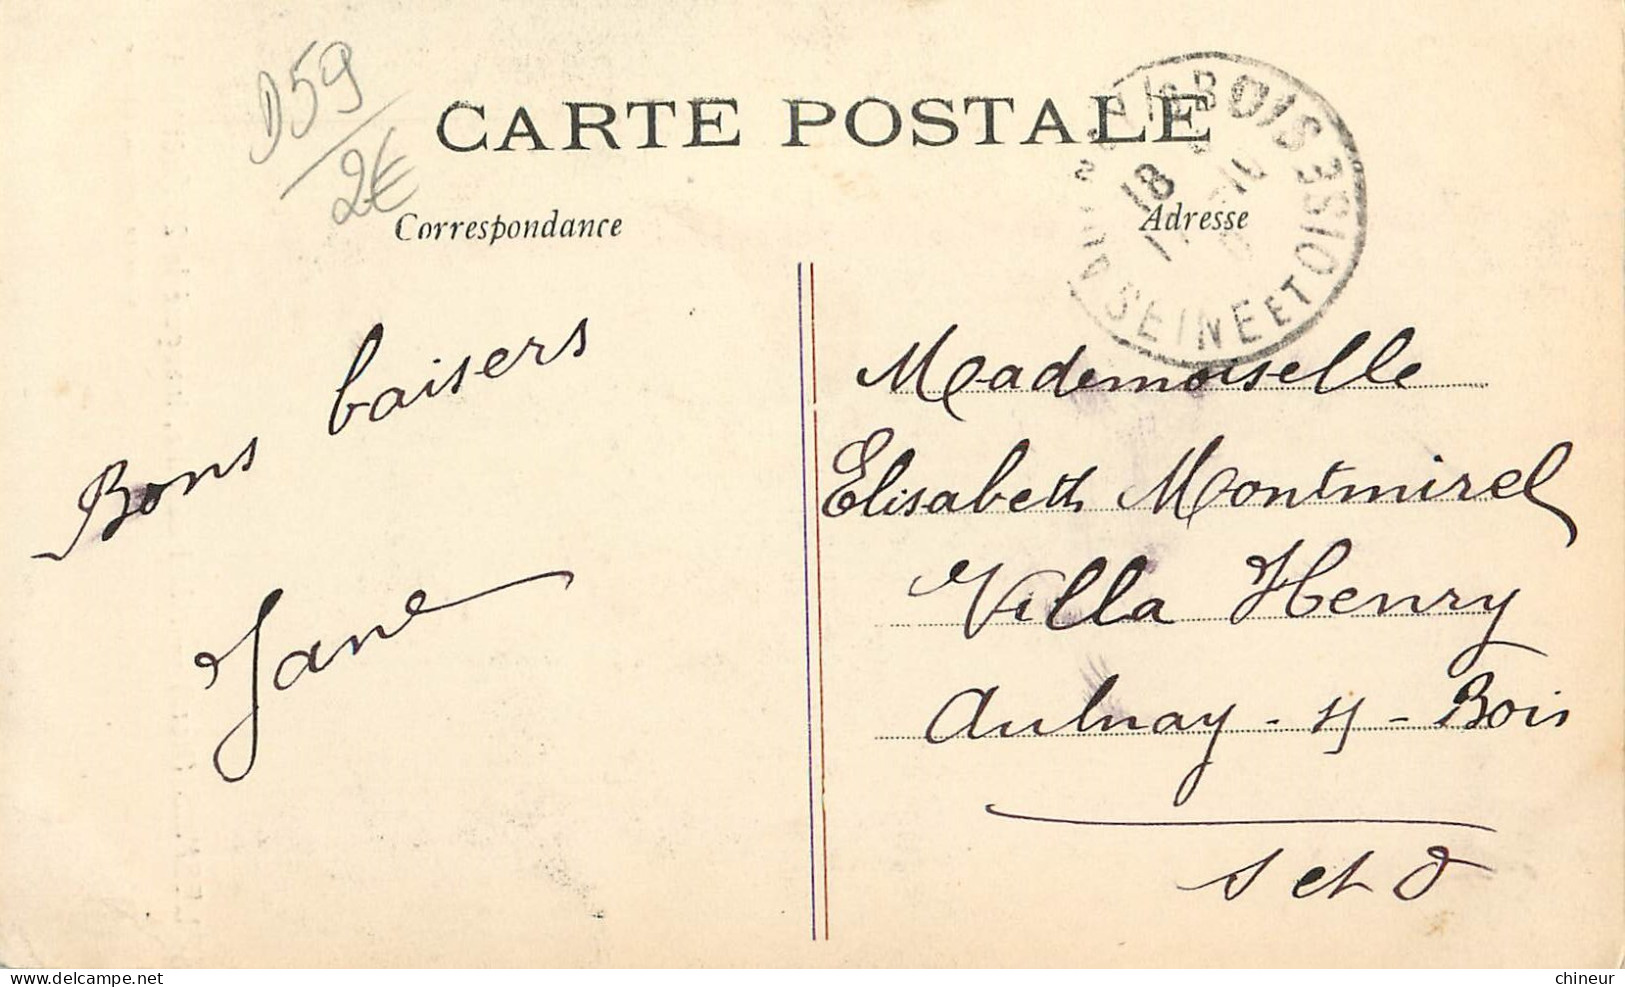 D59
2€
CARTE POSTALE
Correspondance
Adresse
18
SEINE ET OISE
Bons baisers
Jane
Mademoiselle
Elisabeth Montmirel
Villa Henry
Aulnay-s/s-Bois
S et O
delcampe.net
chineur